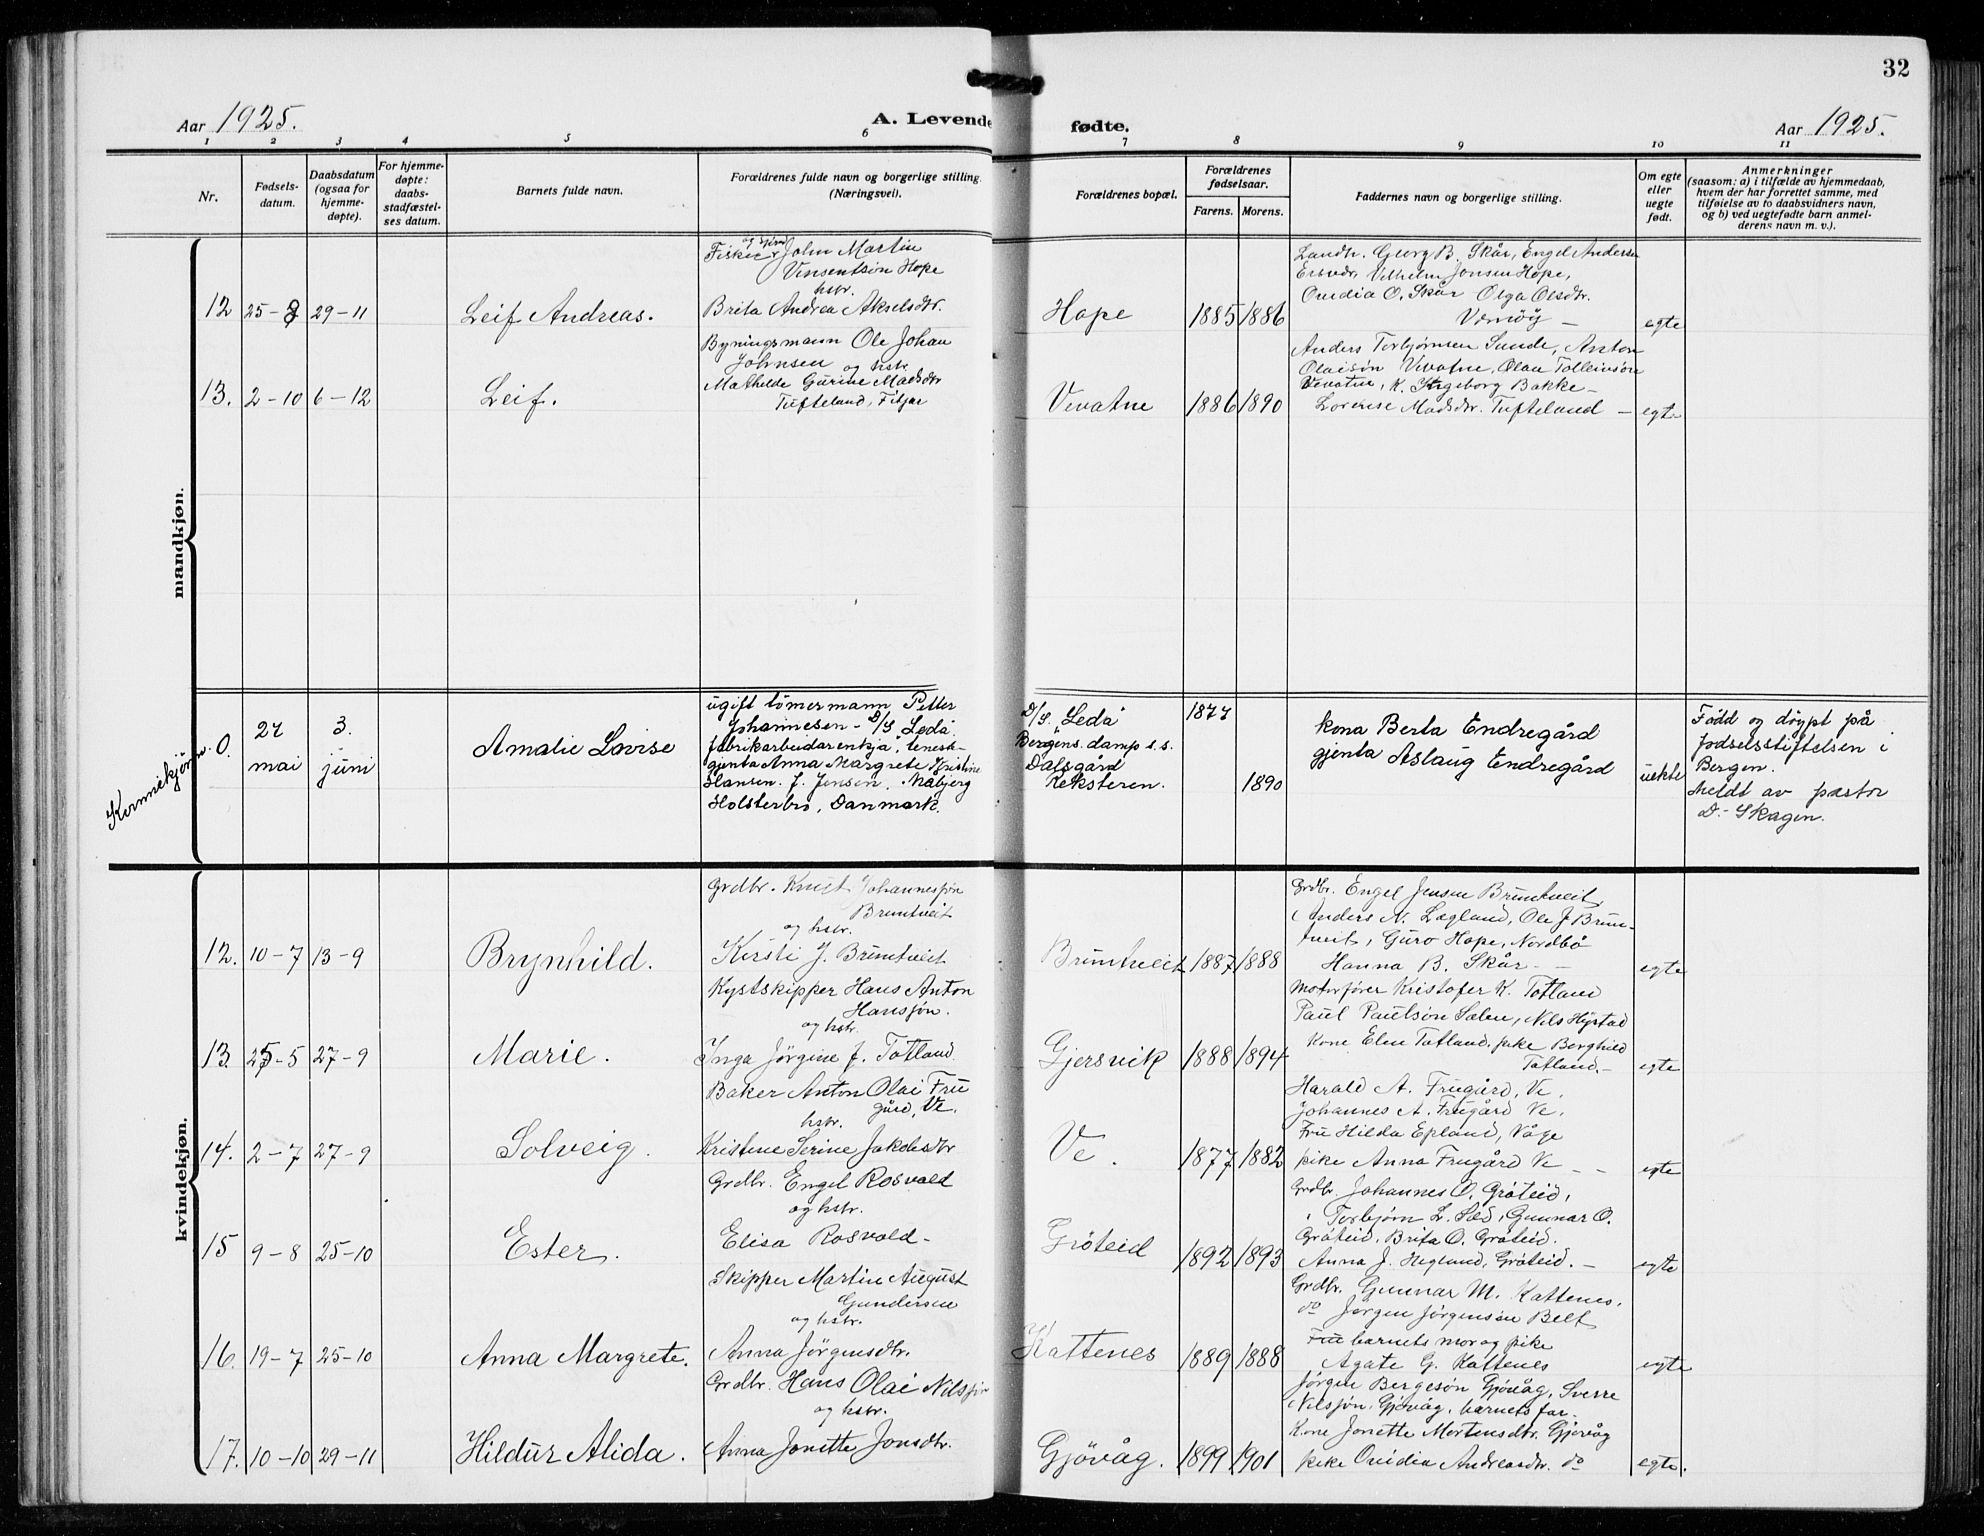 32
Aar 1925.
A. Levende fødte.
Aar 1925.
1 2 3 4 5 6 7 8 9 10 11
Nr.
Fødsels-
datum.
Daabsdatum
(ogsaa for
hjemme-
døpte).
For hjemme-
døpte:
daabs-
stadfæstel-
ses datum.
Barnets fulde navn.
Forældrenes fulde navn og borgerlige stilling.
(Næringsvei).
Forældrenes bopæl.
Forældrenes
fødselsaar.
Farens. Morens.
Faddernes navn og borgerlige stilling.
Om egte
eller
uegte
født.
Anmerkninger
(saasom: a) i tilfælde av hjemmedaab,
hvem der har forrettet samme, med
tilføielse av to daabsvidners navn,
og b) ved uegtefødte barn anmel-
derens navn m. v.).
mandkjøn.
12 25-8 29-11
Leif Andreas.
Fisker John Martin
Vinsentsøn Hope
hstr.
Brita Andrea Akselsdtr.
Hope
1885 1886
Landh. Georg B. Skår, Engel Andersen
Vilhelm Jonsen Hope,
Ovidia O. Skår Olga Olsdtr.
Vernøy —
egte
13. 2-10 6-12
Leif.
Byningsmann Ole Johan
Johnsen og hstr.
Mathilde Gurine Madsdtr
Tufteland, Fitjar
Vevatne
1886 1890
Anders Torbjørnsen Sunde, Anton
Olaisøn Vevatne, Olau Tolleivsøn
Vevatne, K. Ingeborg Bakke—
Lovise Madsdtr. Tufteland —
egte
Kvinnekjønn. 0.
27
mai
3.
juni
Amalie Lovise
ugift tömermann Petter
Johannesen - D/S "Leda"
fabrikarbeidarenkja, tenest-
gjenta Anna Margrete Kristine
Hansen. f. Jensen. Mabjerg
Holsterbro, Danmark.
D/S. "Leda"
Bergens. damp s.s.
Dalsgård
Reksteren.
1877
1890
kona Berta Endregård
gjenta Aslaug Endregård
uekte
Född og döypt på
fødselsstiftelsen i
Bergen.
Meldt av pastor
D. Skagen.
kvindekjøn.
12. 10-7 13-9
Brynhild.
Grdbr. Knut Johannesøn
Bruntveit
og hstr.
Kirsti J. Bruntveit
Bruntveit
1887 1888
Grdbr. Engel Jensen Bruntveit,
Anders N. Lægland, Ole J. Brun-
tveit, Guro Hope, Nordbø
Hanna B. Skår —
egte
13. 25-5 27-9
Marie.
Kystskipper Hans Anton
Hansjøn.
og hstr.
Inga Jørgine J. Totland.
Gjersvik
1888 1894
Motorfører Kristofer K. Totland
Paul Paulsøn Sælen, Nils Hystad
Kone Elen Totland, pike Borghild
Totland. —
egte
14. 2-7 27-9
Solveig.
Baker Anton Olai Fru
gård, Ve.
hstr.
Kristine Serine Jakobsdtr
Ve.
1877 1882
Harald A. Frugård, Ve.
Johannes A. Frugård Ve.
Fru Hilda Epland, Våge
pike Anna Frugård Ve —
egte
15 9-8 25-10
Ester.
Grdbr. Engel Rosvold
og hstr.
Elisa Rosvold —
Gröteid
1892 1893
Grdbr. Johannes O. Gröteid,
Torbjørn L. Sæd, Gunnar O.
Gröteid, Brita O. Gröteid.
Anna J. Hegland, Gröteid. —
egte
16. 19-7 25-10
Anna Margrete.
Skipper Martin August
Gundersen
og hstr.
Anna Jörgensdtr.
Kattenes
1889 1888
Grdbr. Gunnar M. Kattenes.
do Jørgen Jørgensøn Belt
Fru barnets mor og pike
Agate G. Kattenes
egte
17. 10-10 29-11
Hildur Alida.
Grdbr. Hans Olai Nilsjøn
og hstr.
Anna Jonette Jonsdtr.
Gjövåg.
1899 1901
Jørgen Bergesøn Gjövåg, Sverre
Nilsjøn, Gjövåg, barnets far
Kone Jonette Mortensdtr. Gjövåg
pike Ovidia Andreasdtr. do
egte.